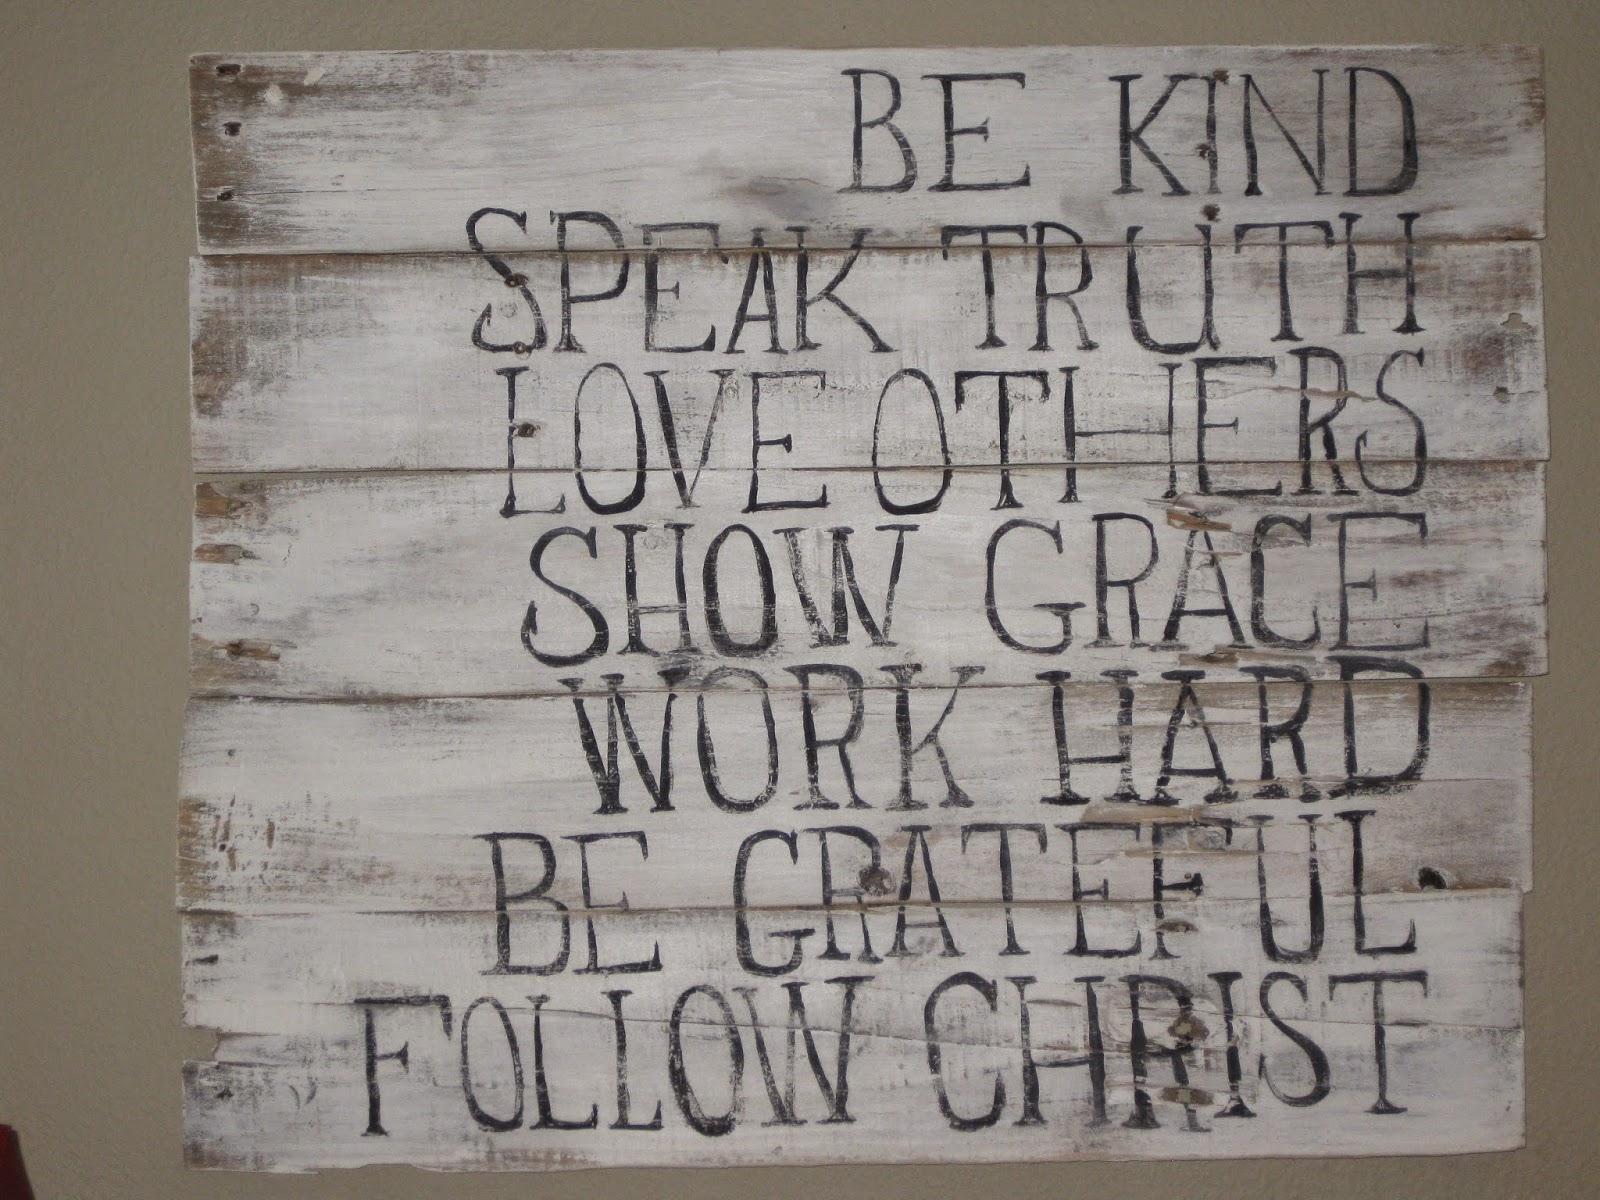 BE KIND
SPEAK TRUTH
LOVE OTHERS
SHOW GRACE
WORK HARD
BE GRATEFUL
FOLLOW CHRIST